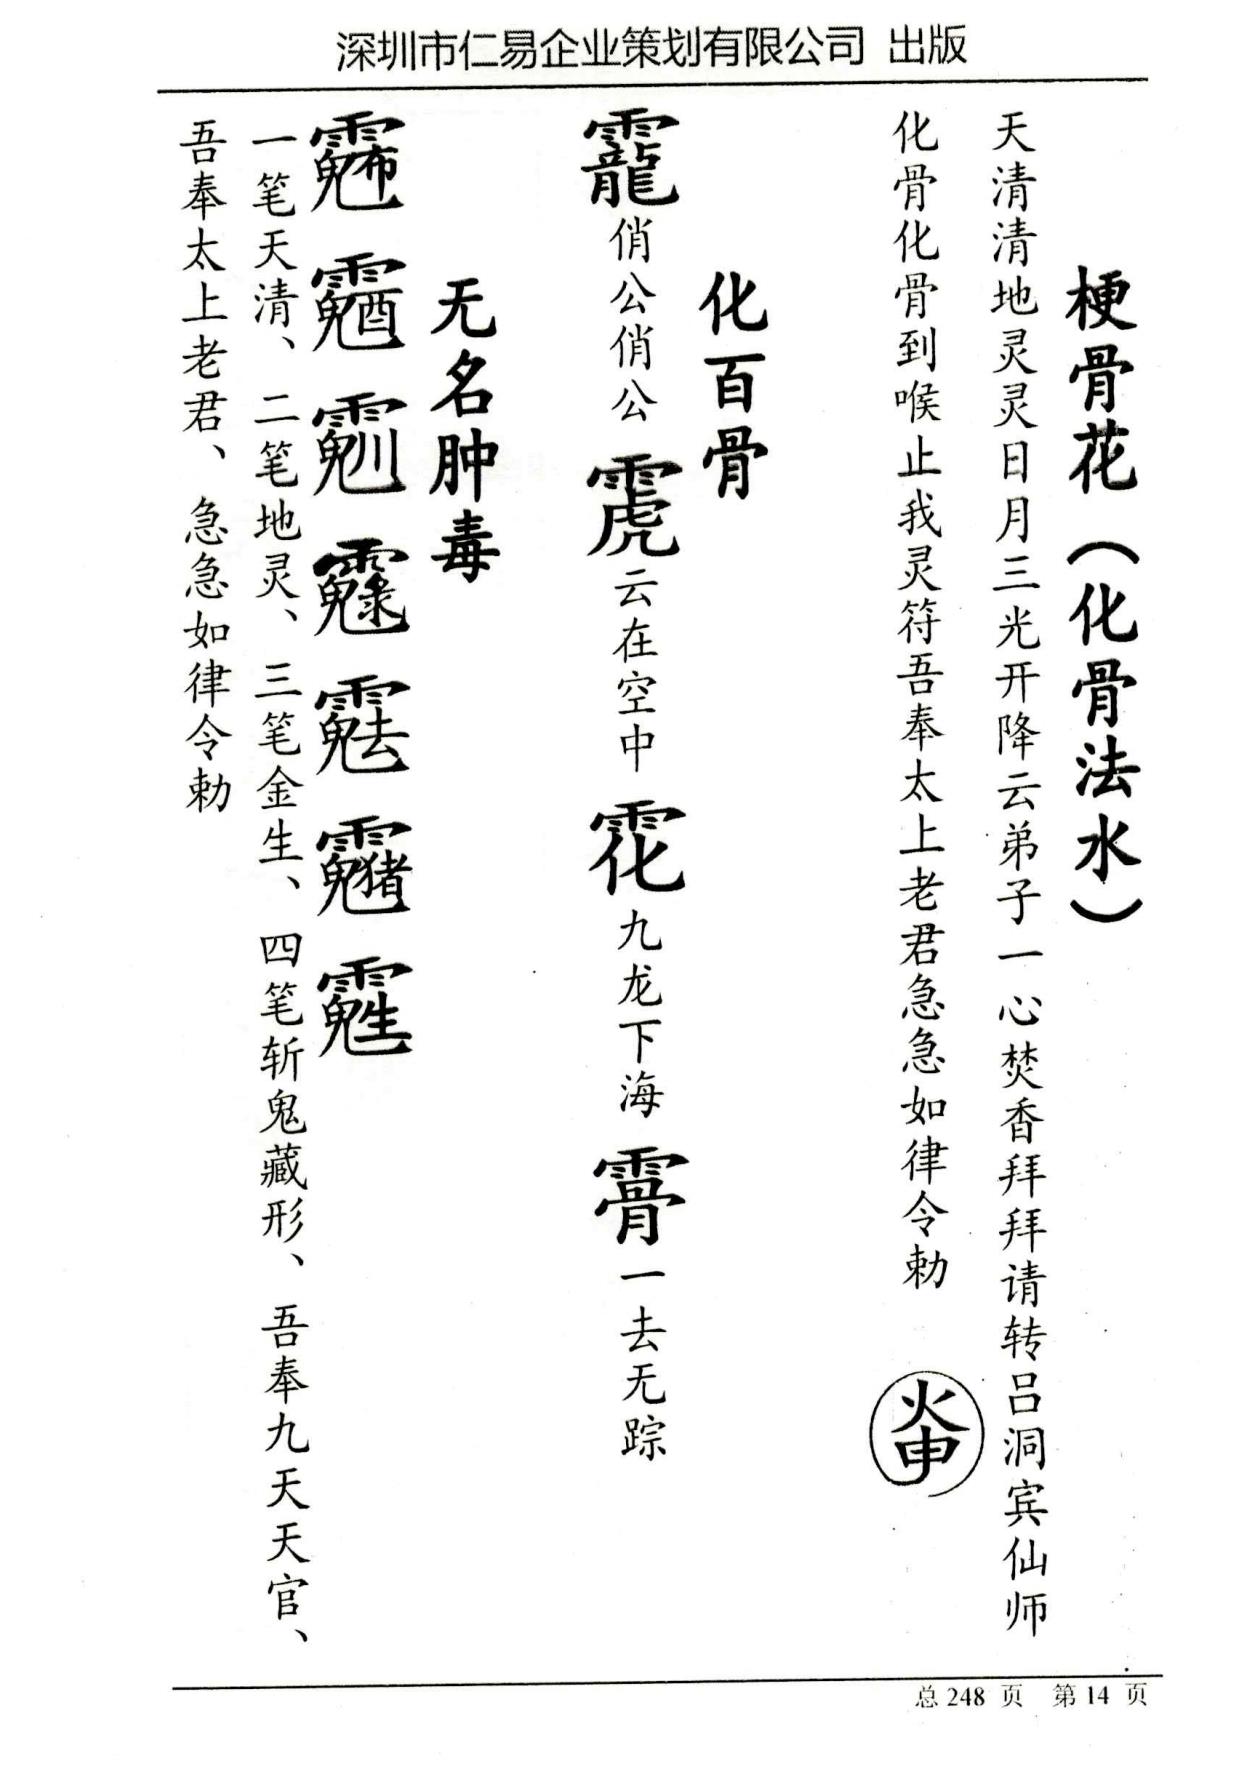 深圳市仁易企业策划有限公司 出版
梗骨花（化骨法水）
天清清地灵灵日月三光开降云弟子一心焚香拜拜请转吕洞宾仙师
化骨化骨到喉止我灵符吾奉太上老君急急如律令勅
化百骨
俏公俏公 云在空中 九龙下海 一去无踪
无名肿毒
一笔天清、二笔地灵、三笔金生、四笔斩鬼藏形、吾奉九天天官、
吾奉太上老君、急急如律令勅
总 248 页 第 14 页